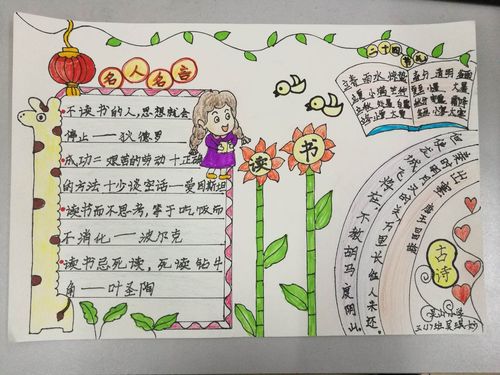 名人名言
不读书的人,思想就会
停止——狄德罗
成功=艰苦的劳动+正确
的方法+少谈空话—爱因斯坦
读书而不思考,等于吃饭而
不消化——波尔克
读书忌死读,死读钻牛
角——叶圣陶
读书
二十四节气
立春 雨水 惊蛰 春分 清明 谷雨
立夏 小满 芒种
小暑 大暑
出塞
秦时明月汉时关
万里长征人未还。
但使龙城飞将在,
不教胡马度阴山。
古诗